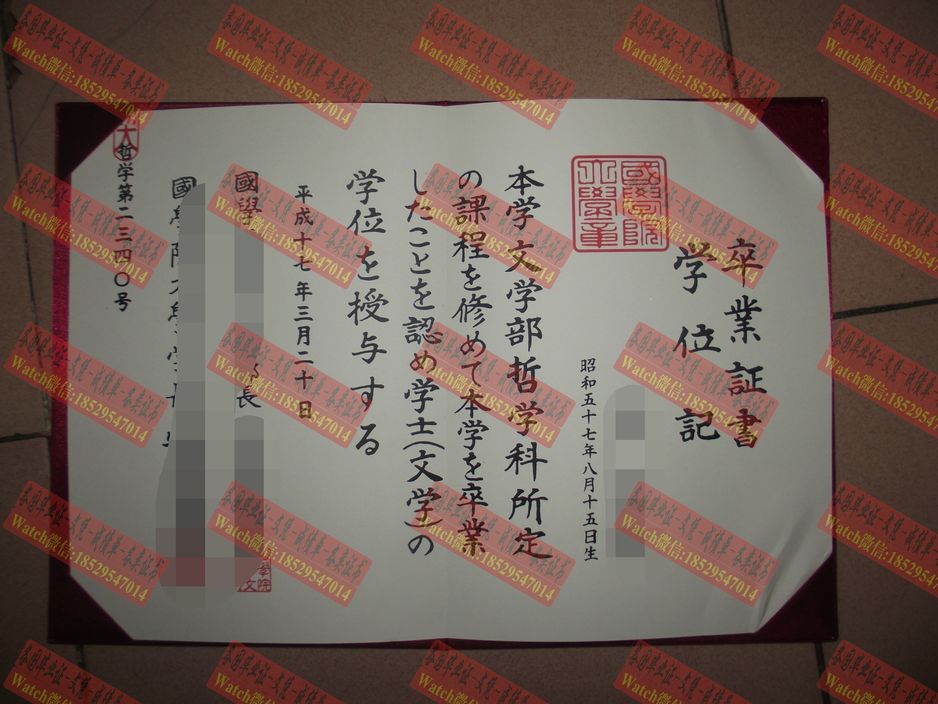 卒業証書
学位記
國學院
大學章
昭和五十七年八月十五日生
本学文学部哲学科所定
の課程を修めて本学を卒業
したことを認め学士(文学)の
学位を授与する
平成十七年三月二十日
國學
長
國學院大學学長
大哲学第二三四〇号
Watch微信:18529547014